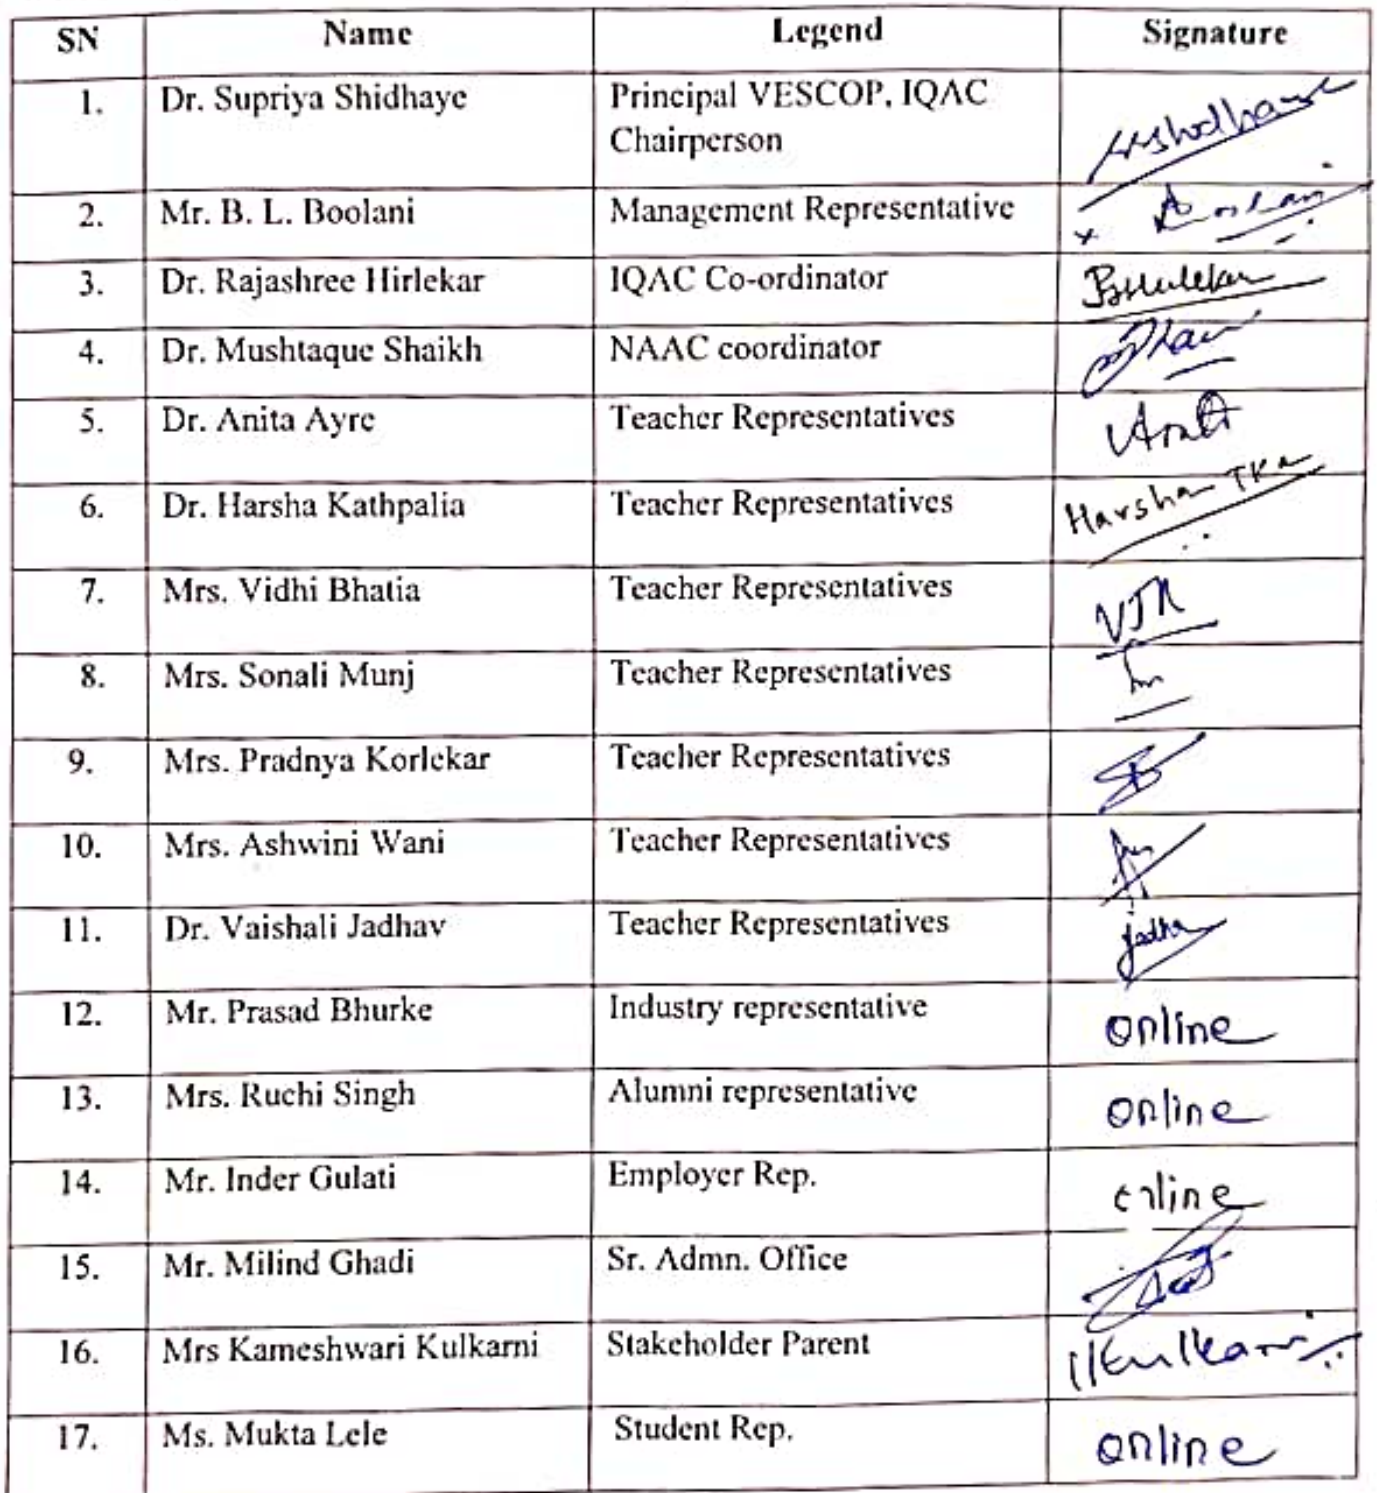 SN Name Legend Signature
1. Dr. Supriya Shidhaye Principal VESCOP, IQAC
Chairperson
2. Mr. B. L. Boolani Management Representative
3. Dr. Rajashree Hirlekar IQAC Co-ordinator
4. Dr. Mushtaque Shaikh NAAC coordinator
5. Dr. Anita Ayre Teacher Representatives
6. Dr. Harsha Kathpalia Teacher Representatives Harsha TKa
7. Mrs. Vidhi Bhatia Teacher Representatives
8. Mrs. Sonali Munj Teacher Representatives
9. Mrs. Pradnya Korlekar Teacher Representatives
10. Mrs. Ashwini Wani Teacher Representatives
11. Dr. Vaishali Jadhav Teacher Representatives
12. Mr. Prasad Bhurke Industry representative online
13. Mrs. Ruchi Singh Alumni representative online
14. Mr. Inder Gulati Employer Rep. online
15. Mr. Milind Ghadi Sr. Admn. Office
16. Mrs Kameshwari Kulkarni Stakeholder Parent Kulkarni
17. Ms. Mukta Lele Student Rep. online